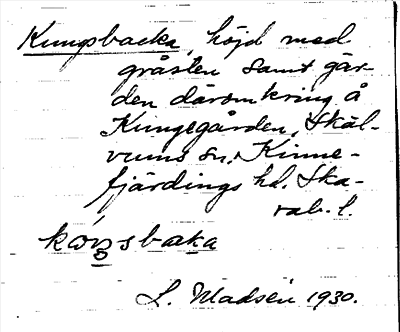 Kungsbacka, höjd med
gråsten samt går-
den däromkring å
Kungegården, Skäl-
vums sn. Kinne-
fjärdings hd. Ska-
rab. l.
L. Madsén 1930.